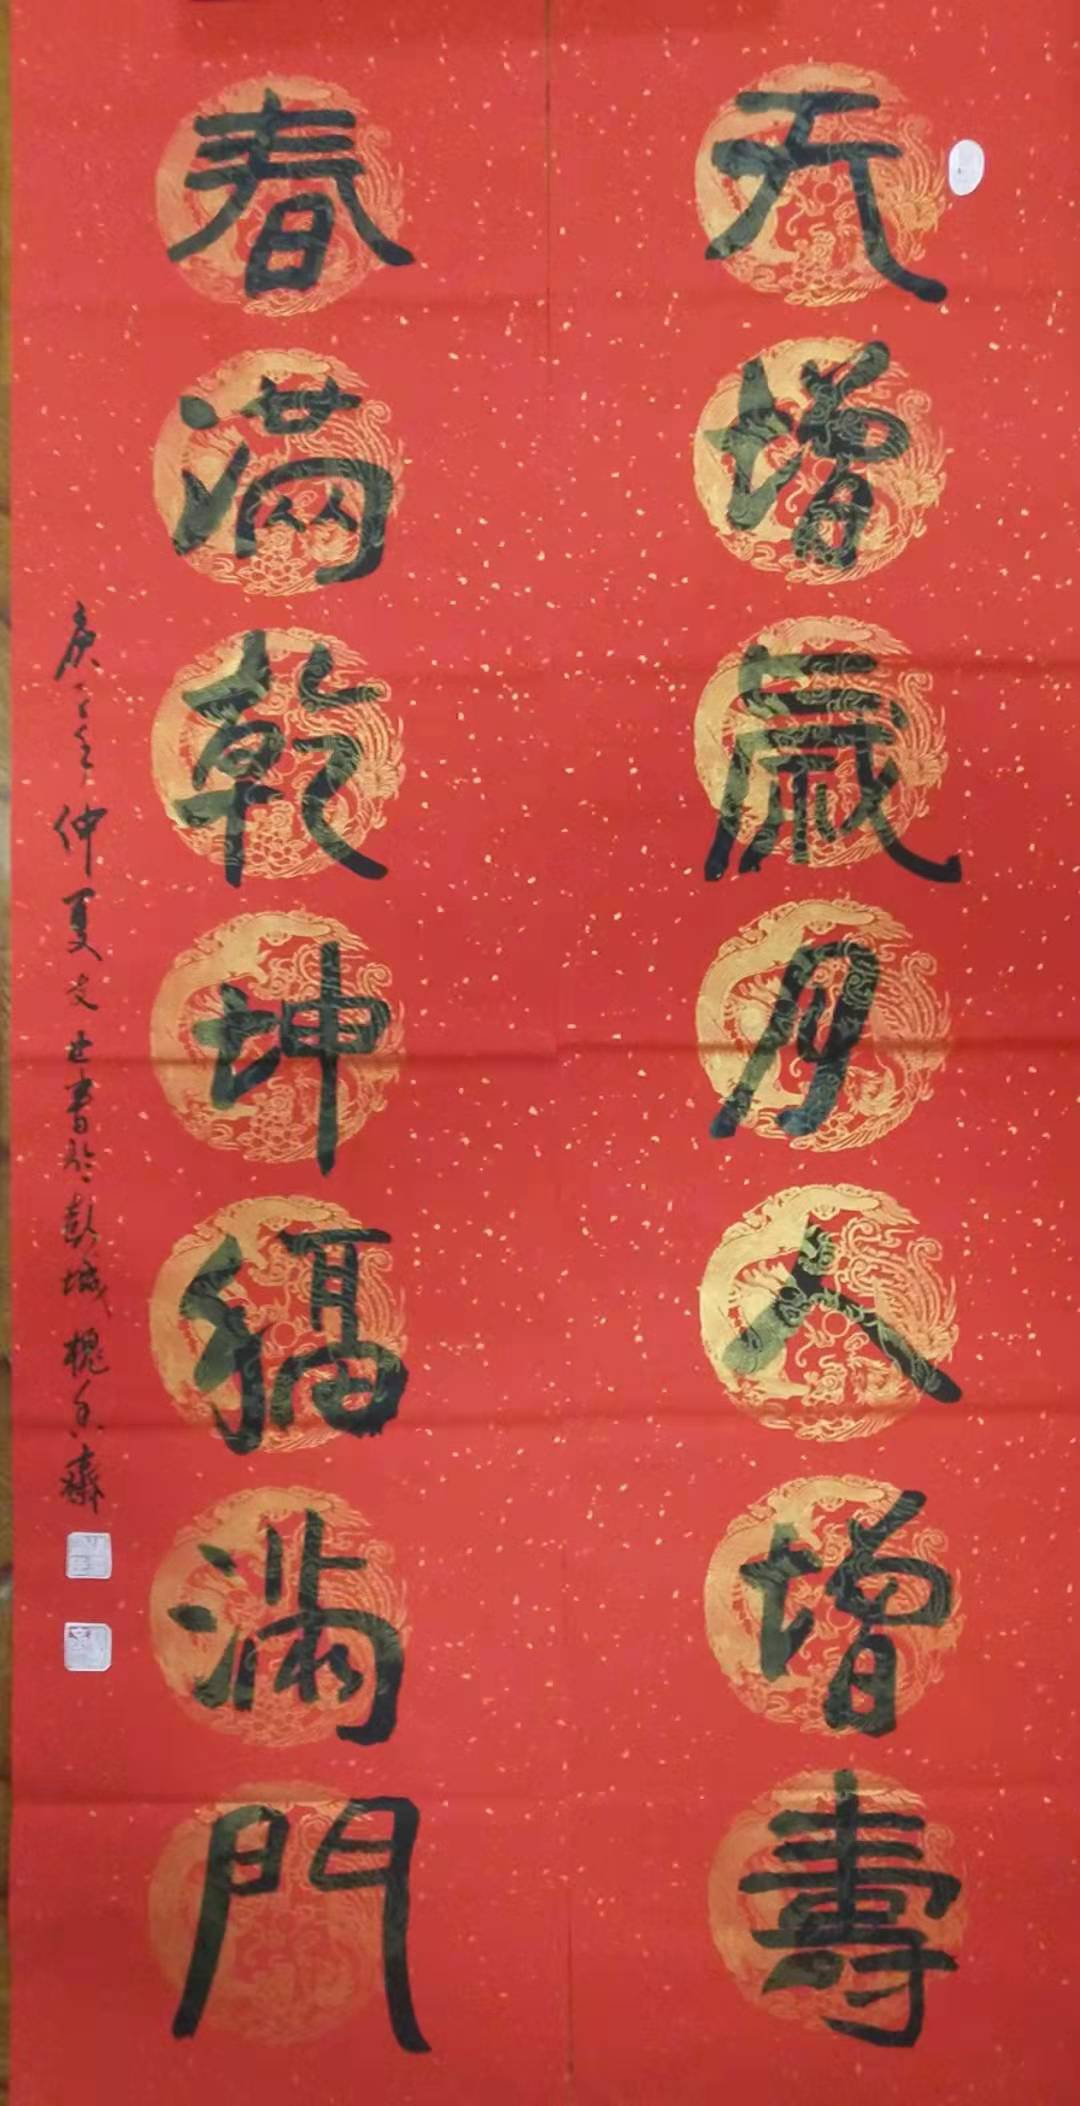 天增歲月人增壽
春滿乾坤福滿門
庚子年仲夏文世書於彭城槐香齋